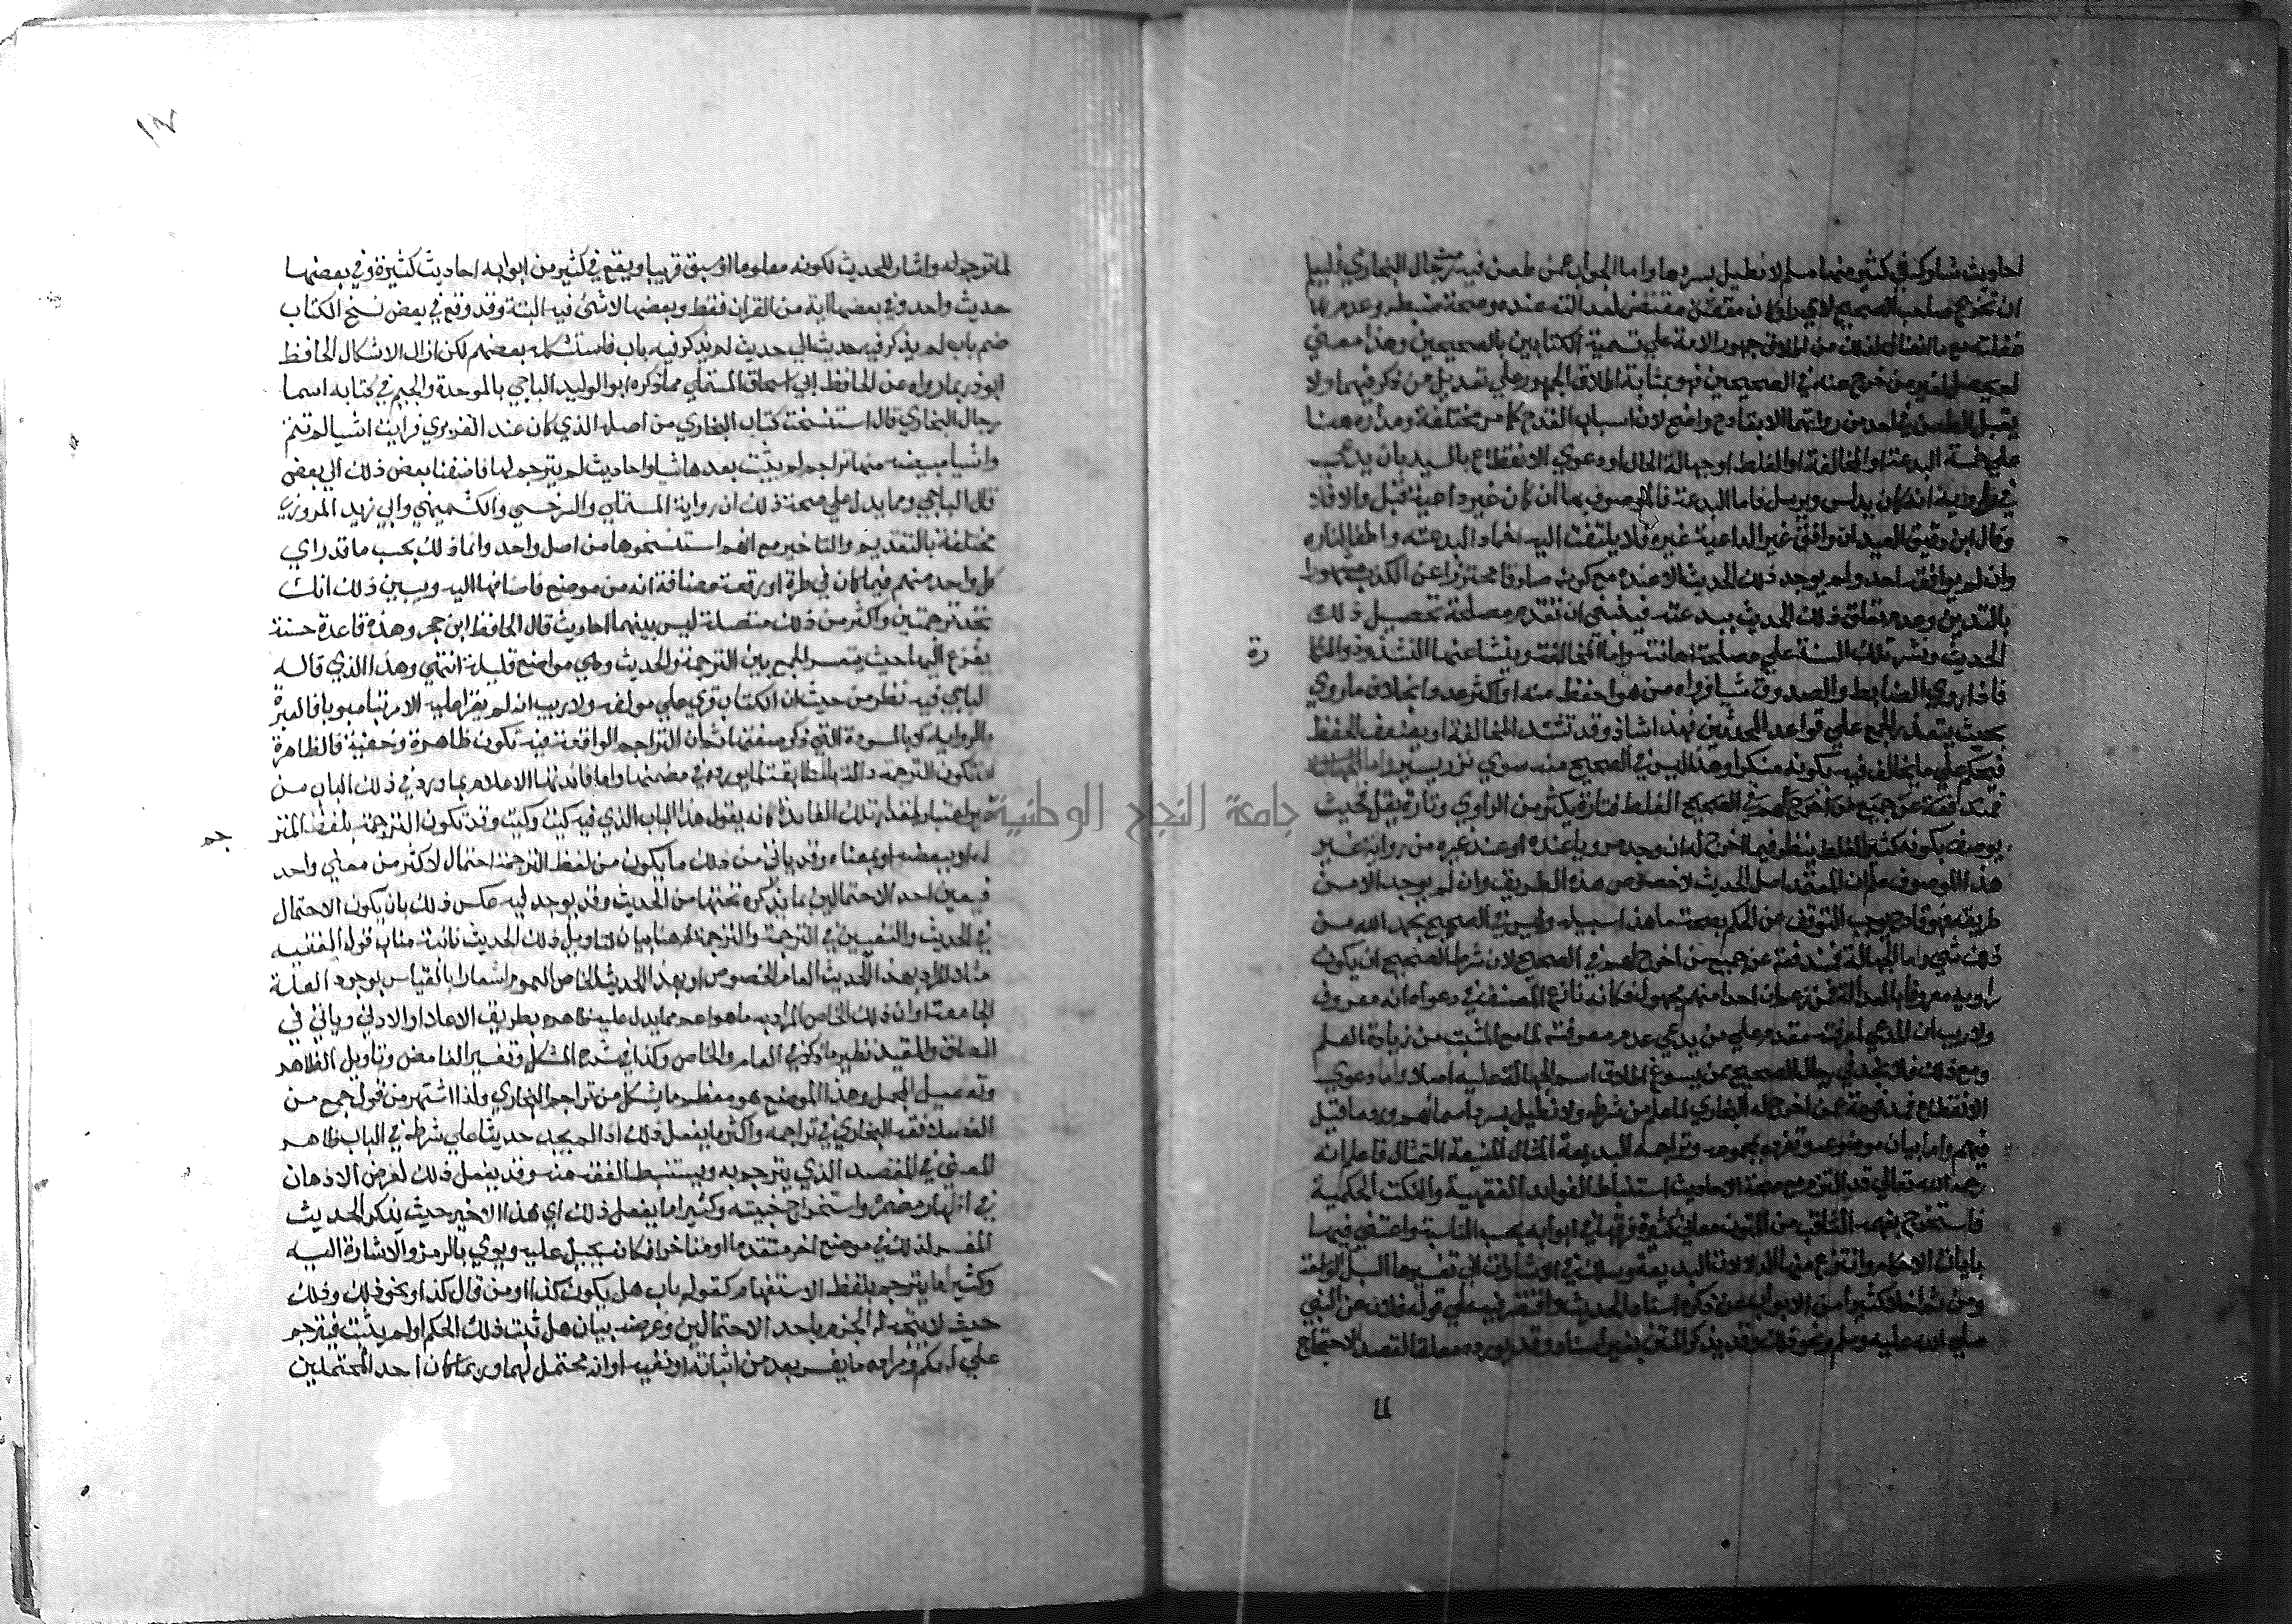 احاديث شاركه في كثير منها مسلم لا نطيل بسردها واما الجواب عمن طعن فيه من رجال البخاري فليعلم
ان تخريج صاحب الصحيح لاي راو كان مقتض لعدالته عنده وصحة ضبطه وعدم
غفلته مع ما انضاف لذلك من اطلاق جمهور الامة على تسمية الكتابين بالصحيحين وهذا معنى
لم يحصل لغير من خرج عنه في الصحيحين فهو بمثابة اطلاق الجمهور على تعديل من ذكر فيهما ولا
يقبل الطعن في احد من رواتهما الا بقادح واضح لان اسباب القدح كما مر مختلفة ومداره هنا
على خمسة البدعة او المخالفة او الغلط او جهالة الحال او دعوي الانقطاع بالسند بان يدعي
في راويه انه كان يدلس ويرسل فاما البدعة فالموصوف بها ان كان غير داعية قبل والا فلا
وقال ابن دقيق العيد ان وافق غير الداعية غيره فلا يلتفت اليه اخمادا لبدعته واطفا لناره
وان لم يوافقه احد ولم يوجد ذلك الحديث الا عنده مع كونه صادقا متحرزا عن الكذب مشهورا
بالتدين وعدم تعلق ذلك الحديث ببدعته فينبغي ان تقدم مصلحة تحصيل ذلك
الحديث ونشر تلك السنة على مصلحة اهانته واما المخالفة وينشا عنها الشذوذ والنكا
رة
فاذا روي الضابط والصدوق شيا فرواه من هو احفظ منه او اكثر عددا بخلاف ما روي
بحيث يتعذر الجمع على قواعد المحدثين فهذا شاذ وقد تشتد المخالفة او يضعف الحفظ
فيحكم على ما يخالف فيه بكونه منكرا وهذا ليس في الصحيح منه سوي نزر يسير واما الجهالة
فمندفعة عن جميع من اخرج لهم في الصحيح الغلط فتارة يكثر من الراوي وتارة يقل فحيث
يوصف بكونه كثير الغلط ينظر فيما اخرج له ان وجد مرويا عنده او عند غيره من رواية غير
هذا الموصوف علم ان المعتمد اصل الحديث لا خصوص هذه الطريق وان لم يوجد الا من
طريقه فهو قادح يوجب التوقف عن الحكم بصحة ما هذا سبيله وليس في الصحيح بحمد الله من
ذلك شي واما الجهالة فمندفعة عن جميع من اخرج لهم في الصحيح لان شرط الصحيح ان يكون
راويه معروفا بالعدالة فمن زعم ان احدا منهم مجهول فكانه نازع المصنف في دعواه انه معروف
ولا ريب ان المدعي لمعرفته مقدم على من يدعي عدم معرفته لما مع المثبت من زيادة العلم
ومع ذلك فلا تجد في رجال الصحيح من يسوغ اطلاق اسم الجهالة عليه اصلا واما دعوي
الانقطاع فمدفوعة عمن اخرج له البخاري لما علم من شرطه ولا نطيل بسرد اسمائهم ورد ما قيل
فيهم واما بيان موضوعه وتفرده بمجموعه وتراجمه البديعة المثال المنيعة التمثال فاعلم انه
رحمه الله تعالى قد التزم مع صحة الاحاديث استنباط الفوايد الفقهية والنكت الحكمية
فاستخرج بفهمه الثاقب من المتون معاني كثيرة فرقها في ابوابه بحسب المناسبة واعتني فيها
بايات الاحكام وانتزع منها الدلالات البديعة وسلك في الاشارات الى تفسيرها السبل الواسعة
ومن ثم اخلا كثيرا من الابواب من ذكر اسناد الحديث واقتصر فيه على قوله فلان عن النبي
صلي الله عليه وسلم ونحو ذلك وقد يذكر المتن بغير اسناد وقد يورده معلقا لقصد الاحتجاج
لما ترجم له واشار للحديث لكونه معلوما او سبق قريبا ويقع في كثير من ابوابه احاديث كثيرة وفي بعضها
حديث واحد وفي بعضها اية من القران فقط وبعضها لا شئ فيه البتة وقد وقع في بعض نسخ الكتاب
ضم باب لم يذكر فيه حديث الي حديث لم يذكر فيه باب فاستشكله بعضهم لكن ازال الاشكال الحافظ
ابو ذر بما رواه عن الحافظ ابي اسحاق المستملي مما ذكره ابو الوليد الباجي بالموحدة والجيم في كتابه اسما
رجال البخاري قال استنسخت كتاب البخاري من اصله الذي كان عند الفربري فرايت اشيا لم تتم
واشيا مبيضة منها تراجم لم يثبت بعدها شيا واحاديث لم يترجم لها فاضفنا بعض ذلك الي بعض
قال الباجي ومما يدل علي صحة ذلك ان رواية المستملي والسرخسي والكشميهني وابي زيد المروزي
مختلفة بالتقديم والتاخير مع انهم استنسخوها من اصل واحد وانما ذلك بحسب ما قد راي
كل واحد منهم فيما كان في طرة او رقعة مضافة انه من موضع فاضافها اليه ويبين ذلك انك
تجد ترجمتين واكثر من ذلك متصلة ليس بينهما احاديث قال الحافظ ابن حجر وهذه قاعدة حسنة
يفزع اليها حيث يتعسر الجمع بين الترجمة والحديث وهي مواضع قليلة انتهي وهذا الذي قاله
الباجي فيه نظر من حيث ان الكتاب قري علي مولفه ولا ريب انه لم يقرا عليه الا مرتبا مبوبا فالعبرة
بالرواية لا بالمسودة التي ذكر صفتها ثم ان التراجم الواقعة فيه تكون ظاهرة وخفية فالظاهرة
ان تكون الترجمة دالة بالمطابقة لما يورده في مضمنها وانما فائدتها الاعلام بما ورد في ذلك الباب من
غير اعتبار لمقدار تلك الفائدة كانه يقول هذا الباب الذي فيه كيت وكيت وقد تكون الترجمة بلفظ المتر
جم
له او ببعضه او بمعناه وقد ياتي من ذلك ما يكون من لفظ الترجمة احتمال لاكثر من معني واحد
فيعين احد الاحتمالين بما يذكره تحتها من الحديث وقد يوجد فيه عكس ذلك بان يكون الاحتمال
في الحديث والتعيين في الترجمة والترجمة هنا بيان لتاويل ذلك الحديث نائبة مناب قول الفقيه
مثلا المراد بهذا الحديث العام الخصوص او بهذا الحديث الخاص العموم اشعارا بالقياس لوجود العلة
الجامعة او ان ذلك الخاص المراد به ما هو اعم مما يدل عليه ظاهره بطريق الاعلا او الادني وياتي في
المطلق والمقيد نظير ما ذكر في العام والخاص وكذا في شرح المشكل وتفسير الغامض وتاويل الظاهر
وتفصيل المجمل وهذا الموضع هو معظم ما يشكل من تراجم البخاري ولذا اشتهر من قول جمع من
الفضلا فقه البخاري في تراجمه واكثر ما يفعل ذلك اذا لم يجد حديثا علي شرطه في الباب ظاهر
المعني في المقصد الذي يترجم به ويستنبط الفقه منه وقد يفعل ذلك لغرض الاذهان
في اظهار مضمره واستخراج خبيته وكثيرا ما يفعل ذلك اي هذا الاخير حيث يذكر الحديث
المفسر لذلك في موضع اخر متقدما او متاخرا فكانه يحيل عليه ويومي بالرمز والاشارة اليه
وكثيرا ما يترجم بلفظ الاستفهام كقوله باب هل يكون كذا او من قال كذا ونحو ذلك وذلك
حيث لا يتجه له الجزم باحد الاحتمالين وغرضه بيان هل ثبت ذلك الحكم او لم يثبت فيترجم
علي الحكم ومراده ما يفسر بعد من اثباته او نفيه او انه محتمل لهما وربما كان احد المحتملين